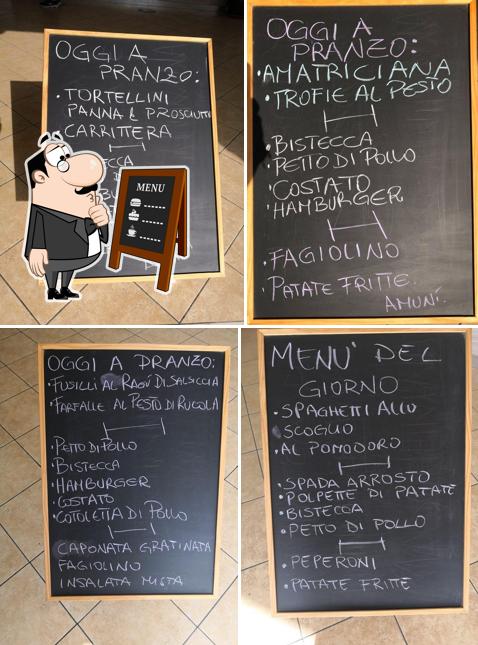 OGGI A
PRANZO:
• TORTELLINI
PANNA & PROSCIUTT
• CARRITTERA
CCA
MENU
OGGI A
PRANZO:
• AMATRICIANA
• TROFIE AL PESTO
• BISTECCA
• PETTO DI POLLO
• COSTATO
• HAMBURGER
• FAGIOLINO
• PATATE FRITTE.
AMUNÌ.
OGGI A PRANZO:
• FUSILLI AL RAGÙ DI SALSICCIA
• FARFALLE AL PESTO DI RUCOLA
• PETTO DI POLLO
• BISTECCA
• HAMBURGER
• COSTATO
• COTOLETTA DI POLLO
CAPONATA GRATINATA
FAGIOLINO
INSALATA MISTA
MENU' DEL
GIORNO
• SPAGHETTI ALLO
SCOGLIO
• AL POMODORO
• SPADA ARROSTO
• POLPETTE DI PATATE
• BISTECCA
• PETTO DI POLLO
• PEPERONI
• PATATE FRITTE